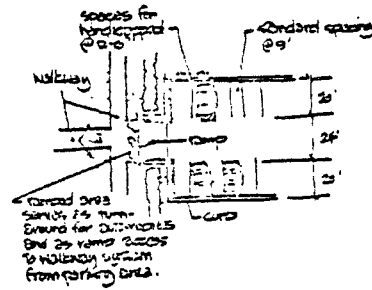 spaces for
handicapped
@ 12'-0"
standard spacing
@ 9'
Walkway
20'
24'
20'
Ramp
curb
ramped area
serves as turn-
around for automobiles
and as ramp access
to walkway system
from parking area.